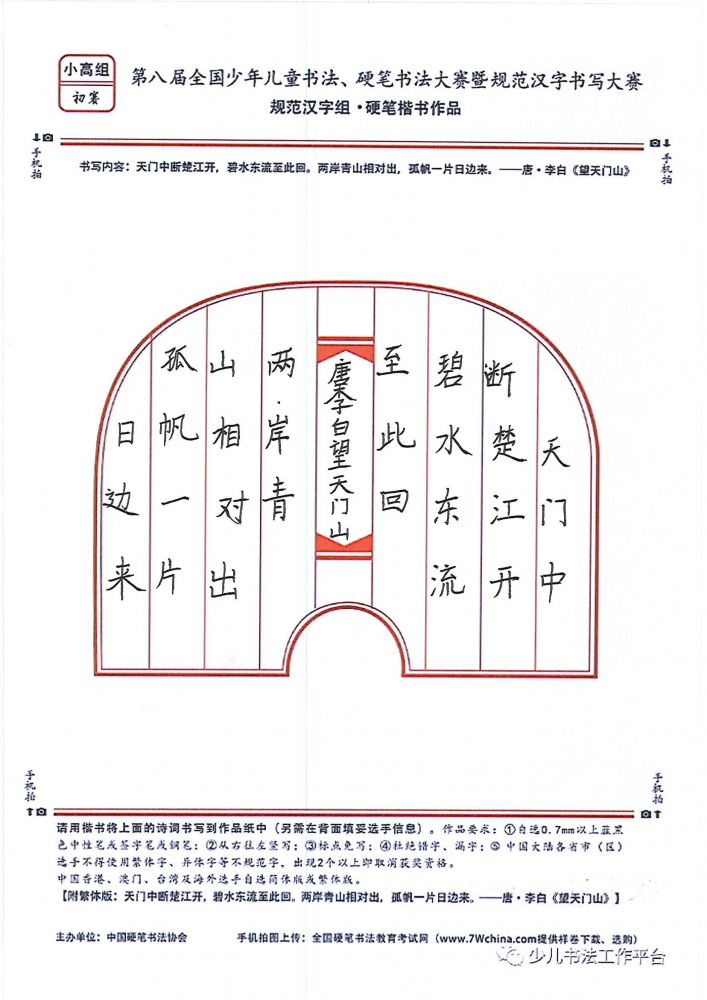 小高组
初赛
第八届全国少年儿童书法、硬笔书法大赛暨规范汉字书写大赛
规范汉字组·硬笔楷书作品
手机拍
手机拍
书写内容：天门中断楚江开，碧水东流至此回。两岸青山相对出，孤帆一片日边来。——唐·李白《望天门山》
天门中
断楚江开
碧水东流
至此回
唐李白望天门山
两岸青
山相对出
孤帆一片
日边来
手机拍
手机拍
请用楷书将上面的诗词书写到作品纸中（另需在背面填妥选手信息）。作品要求：①自选0.7mm以上蓝黑
色中性笔或签字笔或钢笔；②从右往左竖写；③标点免写；④杜绝错字、漏字；⑤中国大陆各省市（区）
选手不得使用繁体字、异体字等不规范字，出现2个以上即取消获奖资格。
中国香港、澳门、台湾及海外选手自选简体版或繁体版。
【附繁体版：天门中断楚江开，碧水东流至此回。两岸青山相对出，孤帆一片日边来。——唐·李白《望天门山》】
主办单位：中国硬笔书法协会
手机拍图上传：全国硬笔书法教育考试网（www.7Wchina.com提供样卷下载、选购）
少儿书法工作平台